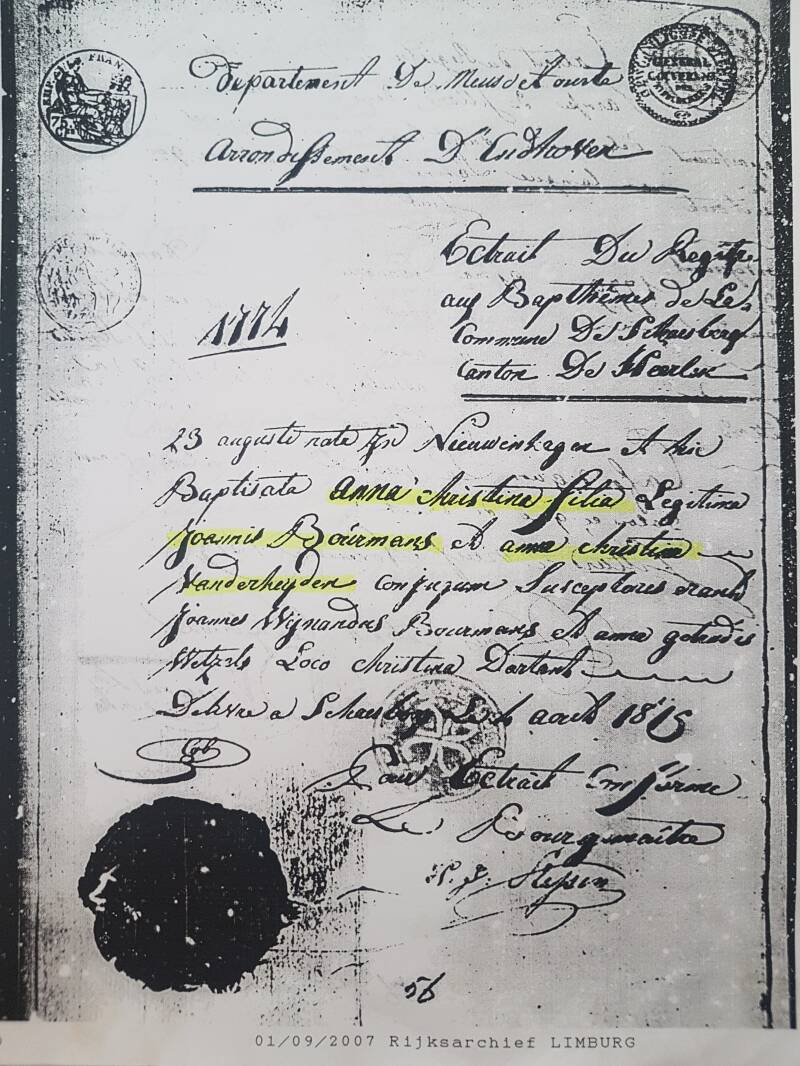 Departement De Meuse et ourte
Arrondissement D'Eindhoven
GENERAL
GOUVERNE
75
Extrait Du Registre
aux Bapthêmes de La
Commune De Schaesberg
Canton De Heerlen
1774
23 augusti nata in Nieuwenhagen et hic
Baptisata anna christina filia Legitima
Joannis Bourmans et anna christina
Vanderheyden conjugum Susceptores erant
Joannes Wijnandus Bourmans et anna
Wetzels Loco christina Dortant
Delivre a Schaesberg Le 4 aout 1815
Pour Extrait Conforme
Le Bourgmaitre
56
01/09/2007 Rijksarchief LIMBURG